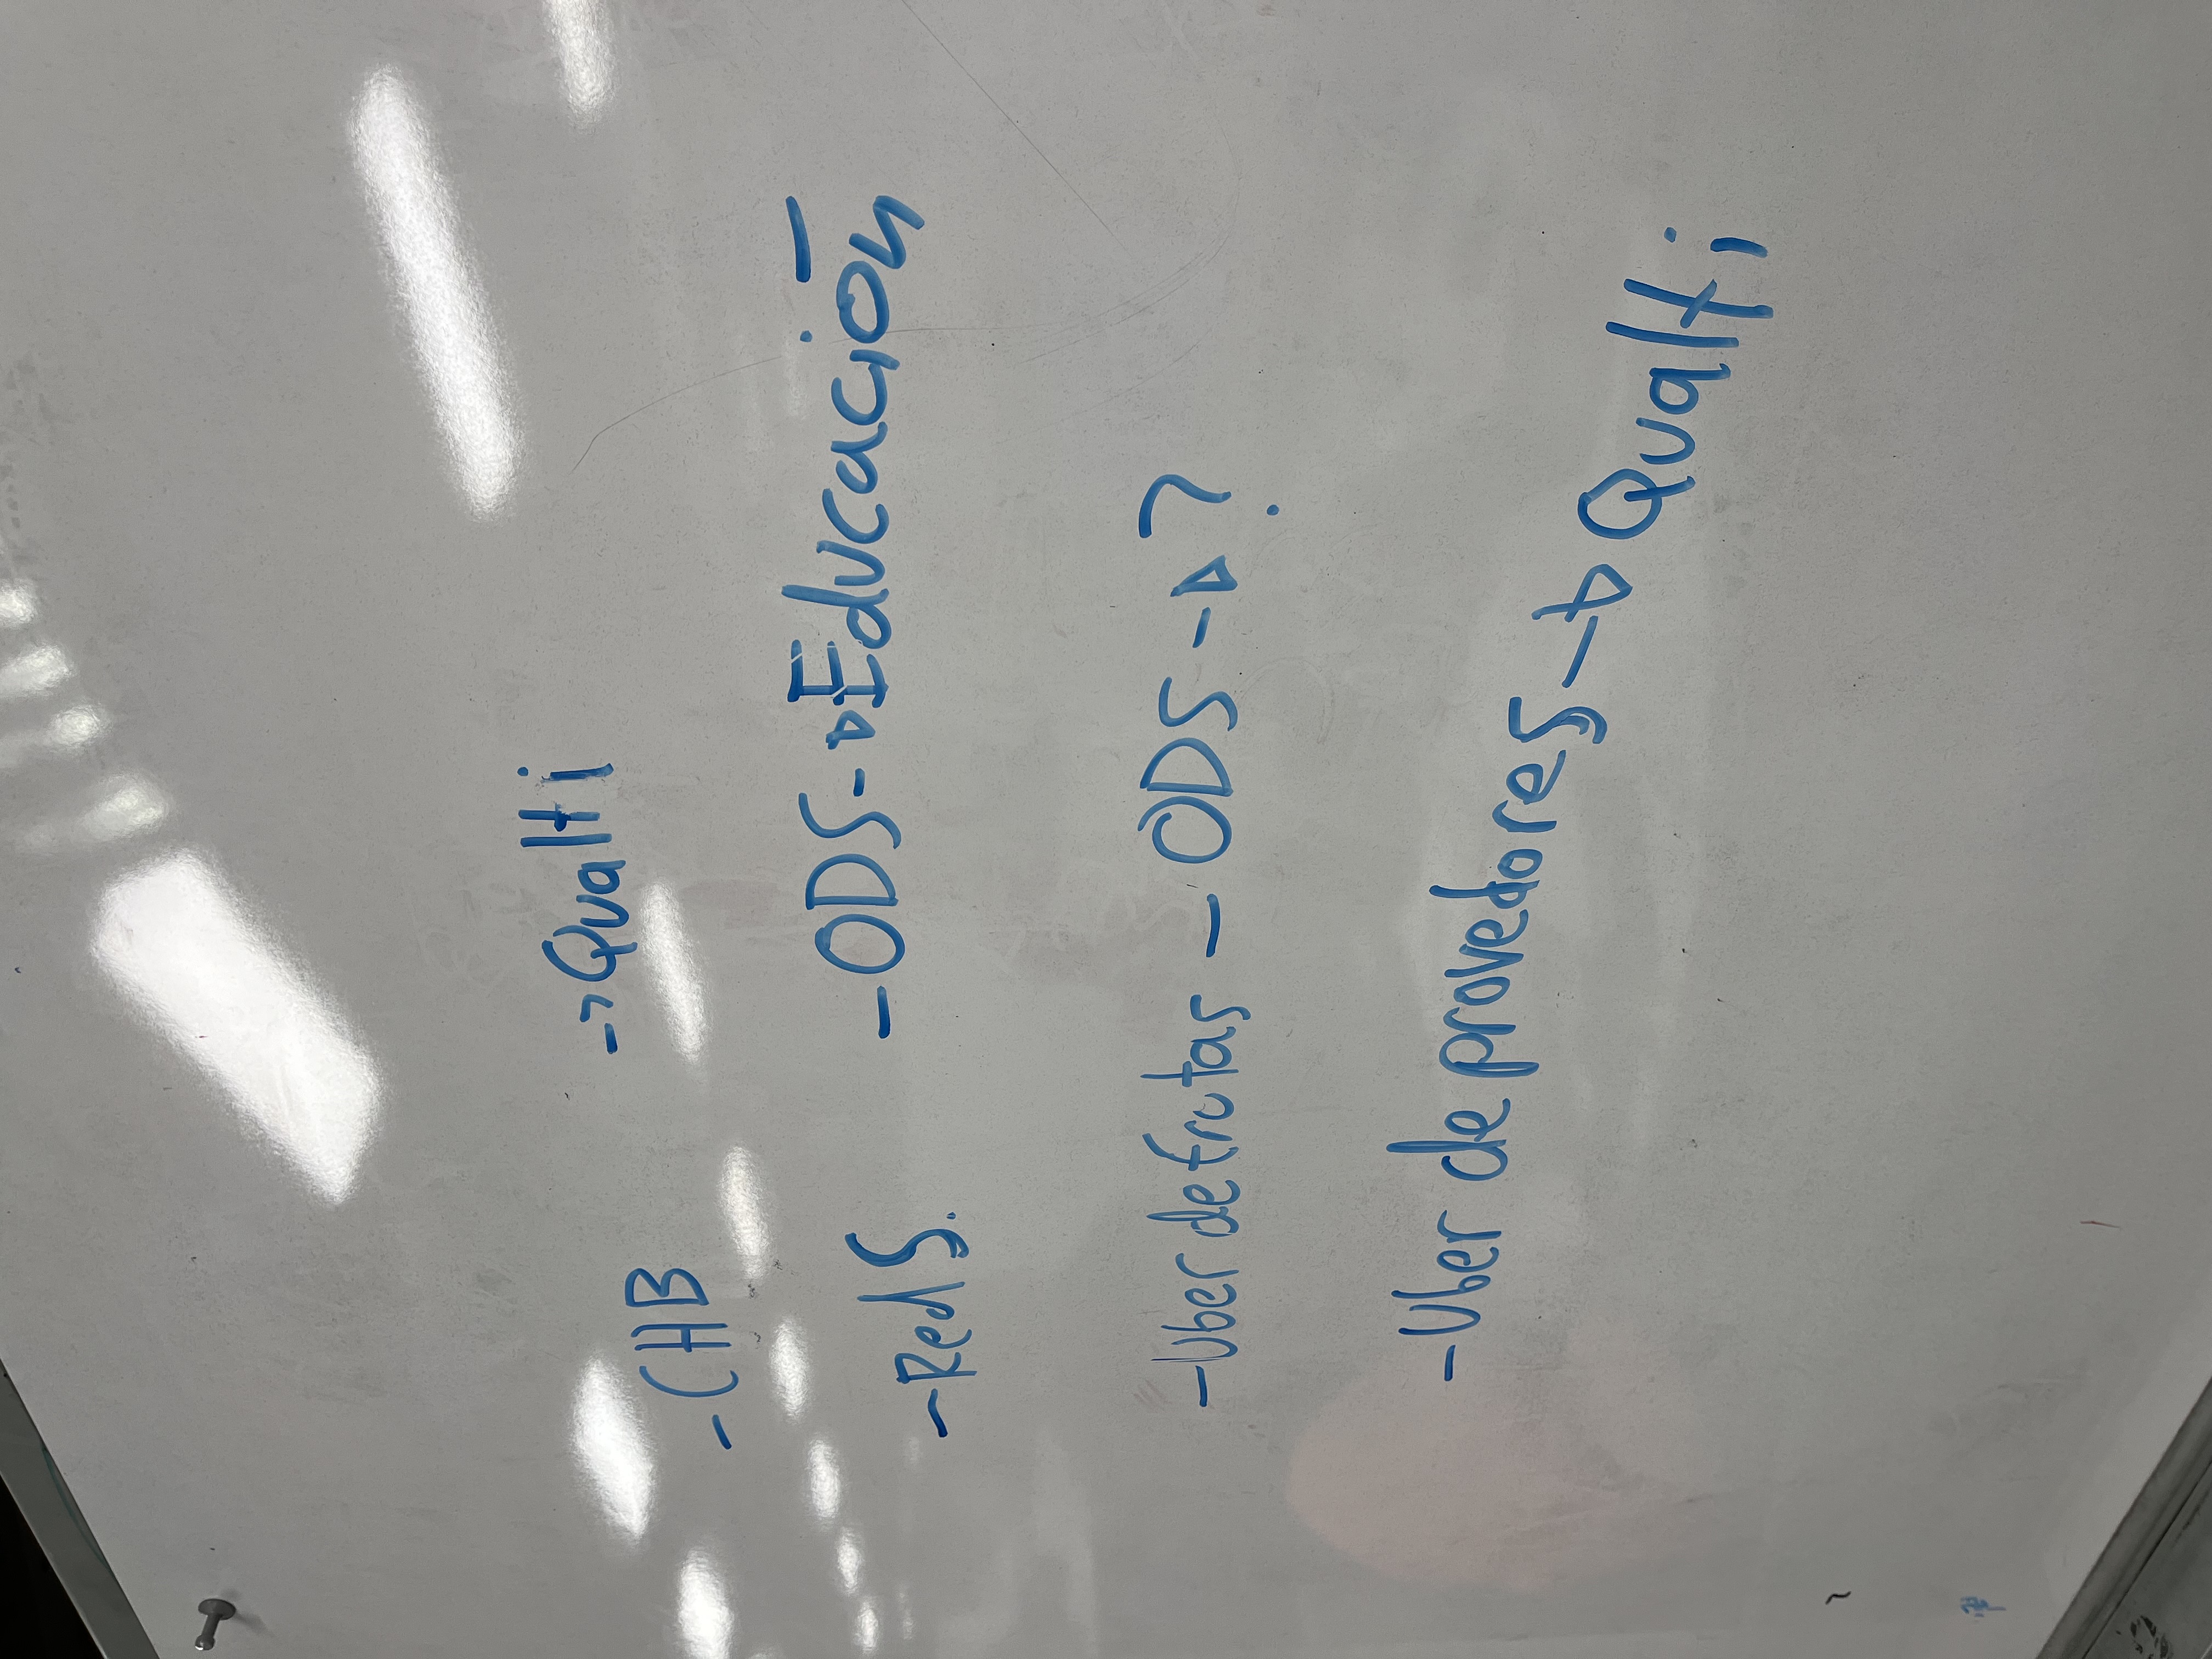 - CHB -> Qualti
- Red S. - ODS -> Educación -
- Uber de frutas - ODS -> ?
- Uber de provedores -> Qualti